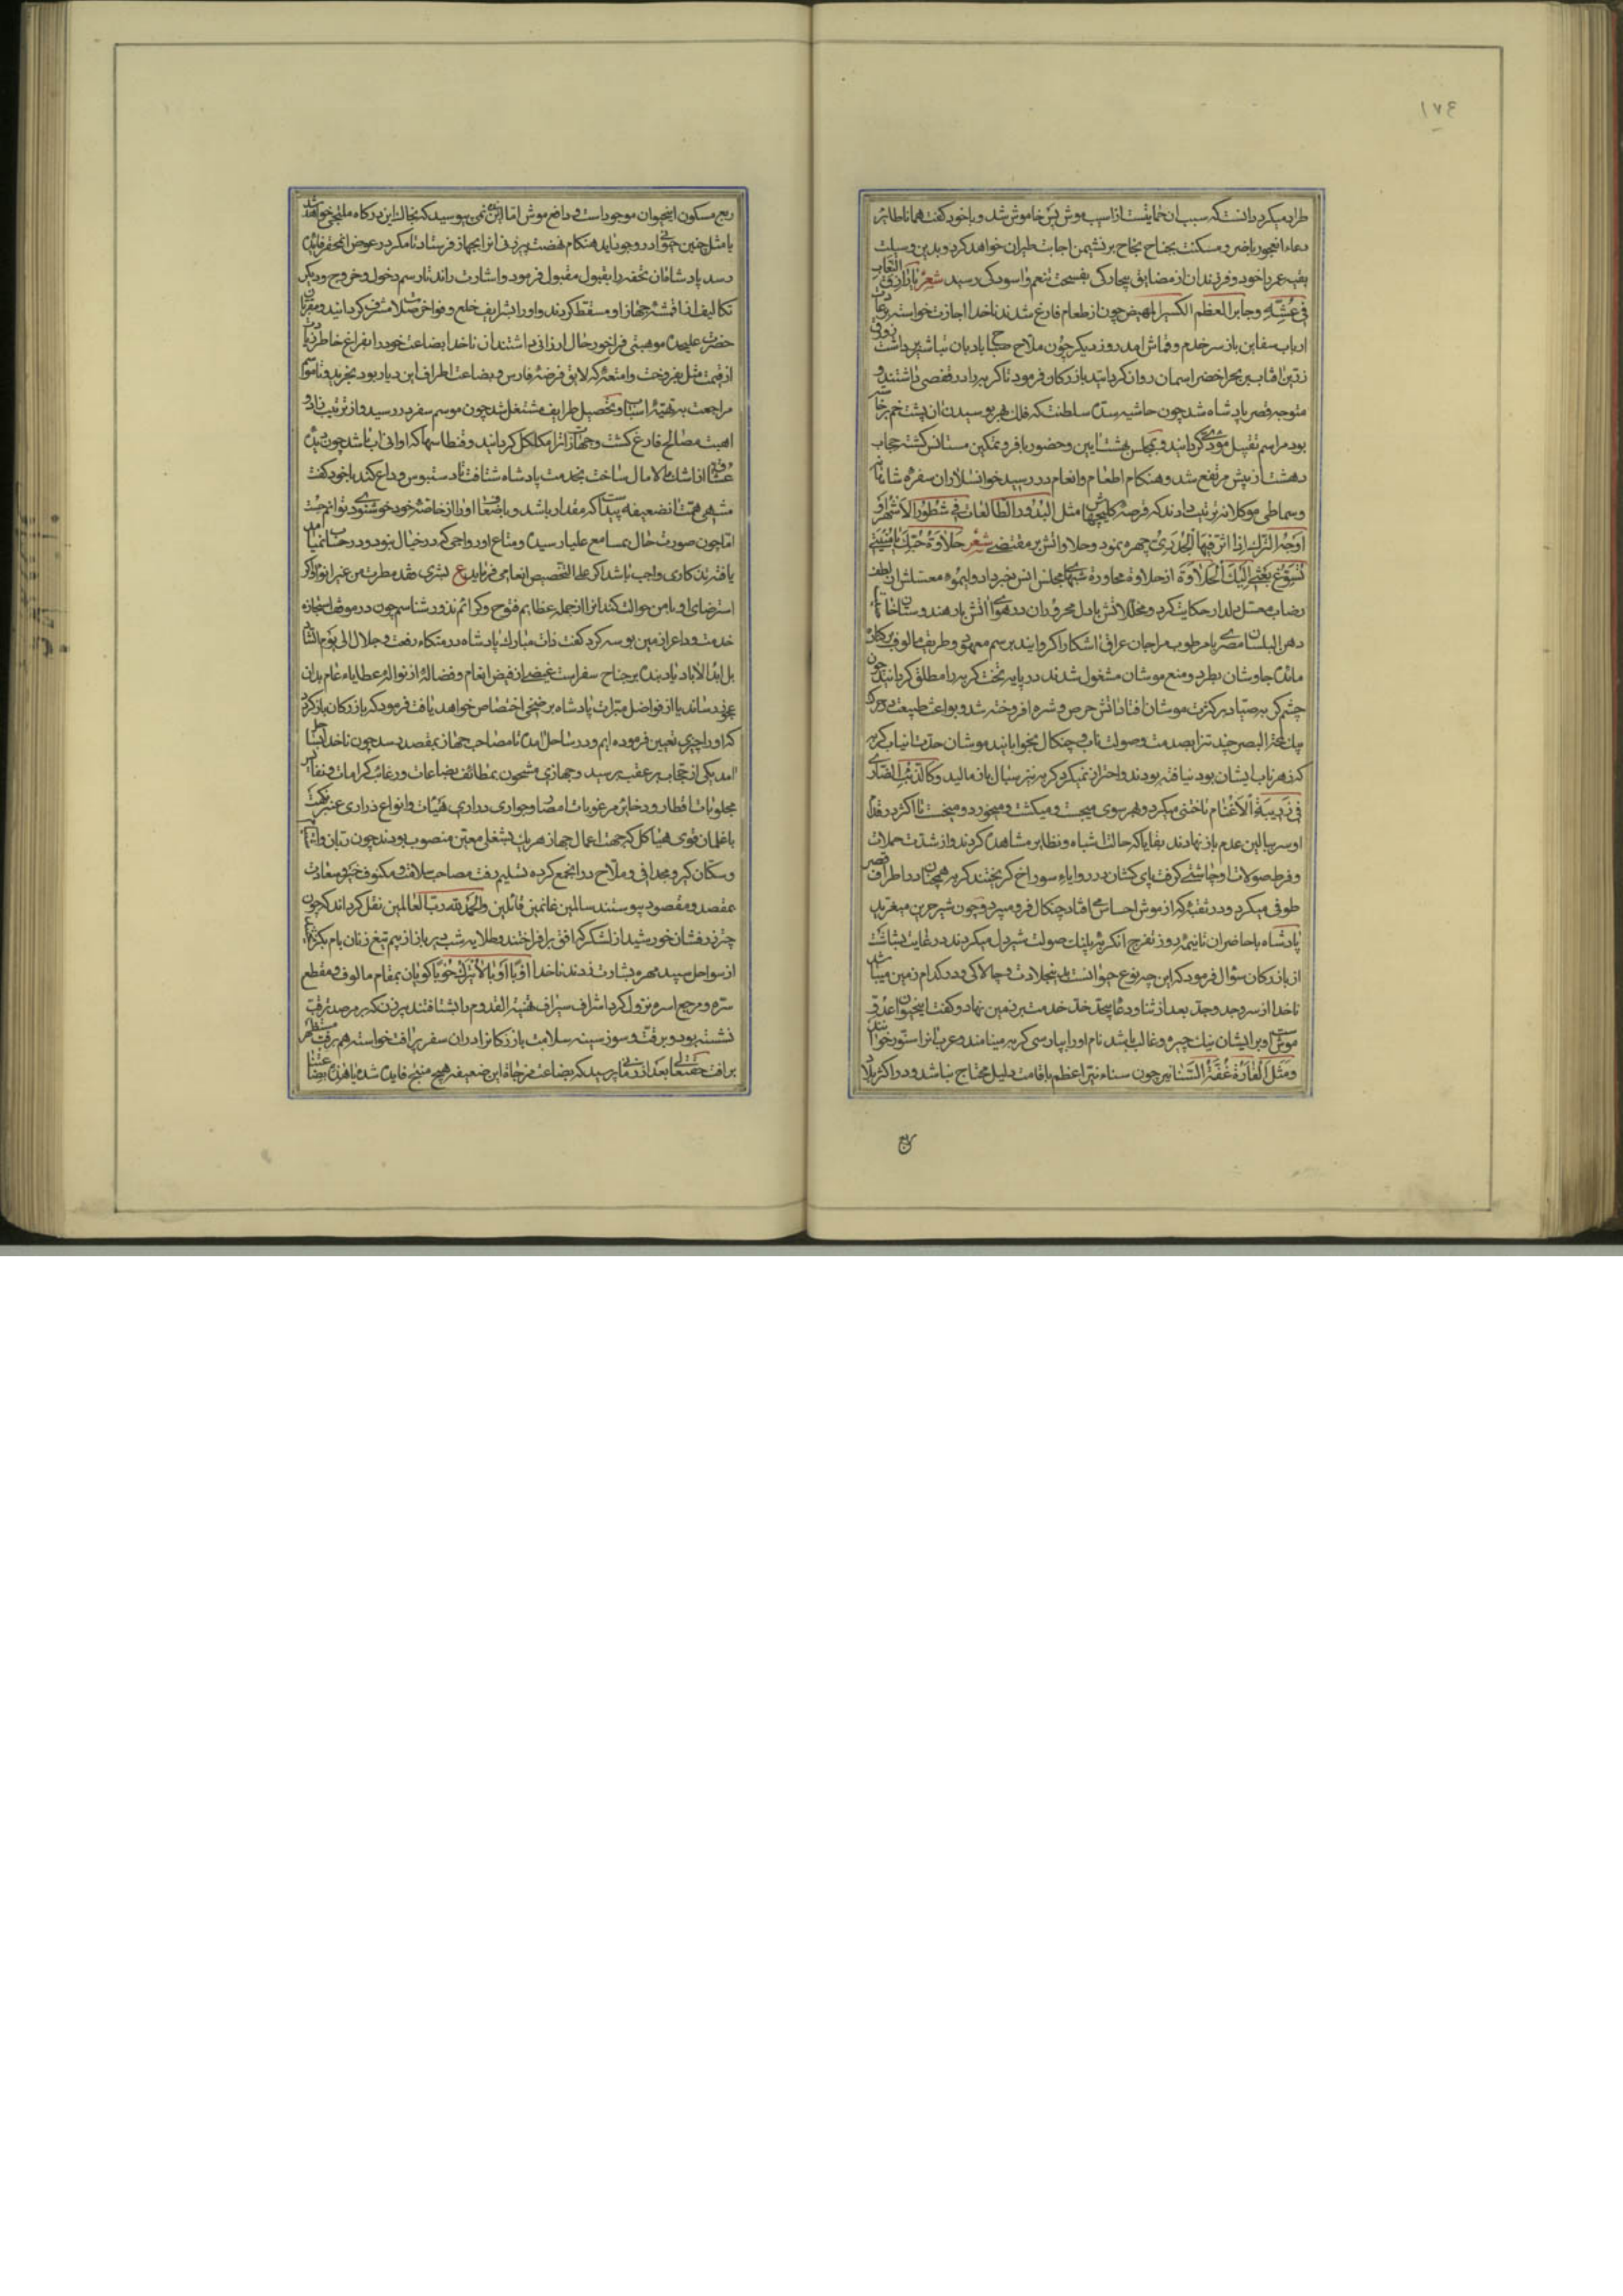 ١٧٤
طرایه میکرد دانست که سبب ان حمایت از اسیب موش پس خاموش شد و با خود گفت همانا طایر
دعاء ان عجوز با ضر و مسکنت بجناح نجاح بر نشیمن اجابت طیران خواهد کرد و بدین وسیلت
بقیه عمر با خود و فرزندان از مضایق بیچارگی بفسحت تنعم و اسودگی رسید شعر یا رازق النعاب
فی عشه وجابر العظم الکسیر المهیض چون از طعام فارغ شدند ناخدا اجازت خواسته
ارباب سفاین باز سر خدم و قماش امد روز دیگر چون ملاح صبح بادبان
زرین افتاب بر بحر اخضر اسمان روان گردانید بازرگان فرمود تا گربه را در قفصی داشتند و
متوجه قصر پادشاه شد چون حاشیه سده سلطنت که فلک بهر بوسیدن ان پشت خم
بود مراسم تقبیل مودی گردانید و بمجلس بهشت ایین و حضور با فر و تمکین مستانس گشته حجاب
دهشت از پیش مرتفع شد و هنگام اطعام و انعام در رسید خوانسلاران سفره شاهانه
و سماطی ملوکانه ترتیب دادند که قرصه کلیجهاش مثل البدور الطالعات فی شطور الاشهر او
اوجه الترک اذا اثر فیها الجدری چهره نمود و حلاواتش بر مقتضی شعر حلاوة حبک یا منیتی
تسوغ بعثی الیک الحلاوة از حلاوة محاورة شبهای مجلس انس خبر داد و لیموء معسلش از لطف
رضاب معسل دلدار حکایت کرد و مخللاتش با دل محروران در هوای اتش بار هندوستان
دهن البلسان مصری با مرطوب مزاجان عراقی اشکارا گردانید بر سم معهود و طریق مالوف بر کنار
مائده چاوشان بطرد و منع موشان مشغول شدند در پایه تخت گربه را مطلق گردانید چون
چشم گربه صیاد بر کثرت موشان افتاد اتش حرص و شره افروخته شد و بواعث طبیعت در حرکت
بیک لمحة البصر چند تن را بصدمت و صولت ناب و چنگال بخوابانید موشان حدت انیاب گربه
که زهر ناب ایشان بود نیافته بودند و احتراز نمیکردند گربه نیز سبال باز مالید و کالذئب الضاری
فی زریبة الاغنام تاختنی میکرد و بهر سوی میجست و میکشت و میخورد و میخست تا اکثر در قدام
او سر ببالین عدم باز نهادند بقایا که حالت اشباه و نظایر مشاهده کردند و از شدت حملات
و فرط صولات او چاشنی گرفت پای کشان در زوایاء سوراخ گریختند گربه همچنان در اطراف قصر
طوفی میکرد و در هر ثقبه که از موش احساس می افتاد چنگال فرو میبرد و چون شیر عرین میغرید
پادشاه با حاضران تا نیمه روز تفرج ان گربه پلنگ صولت شیر دل میکردند در غایت بشاشت
از بازرگان سؤال فرمود که این چه نوع حیوانست بدین جلادت و چالاکی و در کدام زمین میباشد
ناخدا از سر وجد و جد بعد از ثنا و دعا پنجه خد خدمت بر زمین نهاد و گفت این حیوان عدو
موش است و بر ایشان نیک چیره و غالب باشد نام او را بپارسی گربه مینامند و عرب انرا سنور خوانند
و مثل الفارة غفة السنانیر چون سناء نیر اعظم باقامت دلیل محتاج نباشد و در اکثر بلاد
ربع
ربع مسکون اینحیوان موجود است و دافع موش اما ان زمین نمی پوسید که بخاک این درگاه ملتجی خواهد شد
یا مثل چنین حیوانی ادر وجود اید هنگام نهضت پیرزنی انرا بجهاز فرستاد تا مگر در عوض ان محقر فایده
رسد پادشاه ان تحفه را بقبول مقبول فرمود و اشارت راند تا رسم دخول و خروج و دیگر
تکالیف از اقمشه جهاز او مسقط کردند و او را بشرایف خلع و فواخر صلات مشرف گردانید و مقربان
حضرت علیحده موهبتی فراخور حال ارزانی داشتند ان ناخدا بضاعت خود را بفراغ خاطر
از قیمت مثل بفروخت و امتعه که لایق فرضه فارس و بضاعت اطراف این دیار بود بخرید و تا موسم
مراجعت بتهیه اسباب و تحصیل طرایف مشتغل شد چون موسم سفر در رسید و از ترتیب زاد و
اهبت مصالح فارغ گشت و جهاز انرا مکلل گردانید
عنقا اذا شاء الامال ساخت بخدمت پادشاه شتافت تا دستبوس وداع کند با خود گفت
منتهی همت ان ضعیفه پیداست که مقدار باشد و بضاعت او را از خاصه خود خوشنود توانم
اما چون صورت حال بمسامع علیا رسیده و متاع او رواجی که در خیال نبود و در حساب نمی امد
یافته تذکاری واجب باشد اگر علی التخصیص انعامی فرماید ع بشری فقد مطرت من غیر انواء و اگر
استرضای او با من حوالت کند انرا از جمله عظایم فتوح و کرایم نذور شناسم چون در موقف اجازه
خدمت وداع را زمین بوسه کرد گفت ذات مبارک پادشاه در متکاء رفعت و جلال الی یوم التناد
بل ابد الاباد باد بنده بر جناح سفر است غیضی از فیض انعام و فضاله از نواله عطایاء عام بدان
عجوز رساند یا از فواضل مبرات پادشاه بر ضخی اختصاص خواهد یافت فرمود که بازرگان باز گردد
که او را چیزی تعیین فرموده ایم و در ساحل امده تا مصاحب جهاز بمقصد رسد چون ناخدا
امد یکی از حجاب بر عقب برسید و جهازی مشحون بطائف بضاعات و رغائب کرامات و نفایس
مجلوبات اقطار و ذخایر مرغوبات امصار و جواری دراری هیئات و انواع ذراری عنبر نکهت
با غلمان قوی هیاکل که جهت اعمال جهاز هر یک بشغلی معین منصوب بودند چون ربان و
و سکان گیر و مجدافی و ملاح در انجمع کرده تسلیم رفت مصاحب سلامت و مکنوف خیر و سعادت
بمقصد و مقصود پیوستند سالمین غانمین قائلین والحمد لله رب العالمین نقل کرده اند که چون
چتر زرفشان خورشید از لشکرگاه افق بر افراختند و طلایه شب دیر باز از بیم تیغ زنان بام
از سواحل سپیده مهره بشارت زدند ناخدا اوبا اوبا لا تترک حوبا گویان بمقام مالوف و مقطع
سره و مرجع اسره نزول کرد اشراف سیراف تهنیة القدوم را بشتافتند پیرزن که بر مرصد ترقب
نشسته بود و برقت و سوز سینه سلامت بازرگان را در ان سفر پر افت خواسته هم برفت
پرسید که بضاعت مزجاة این ضعیفه هیچ منتج فایده شد یا